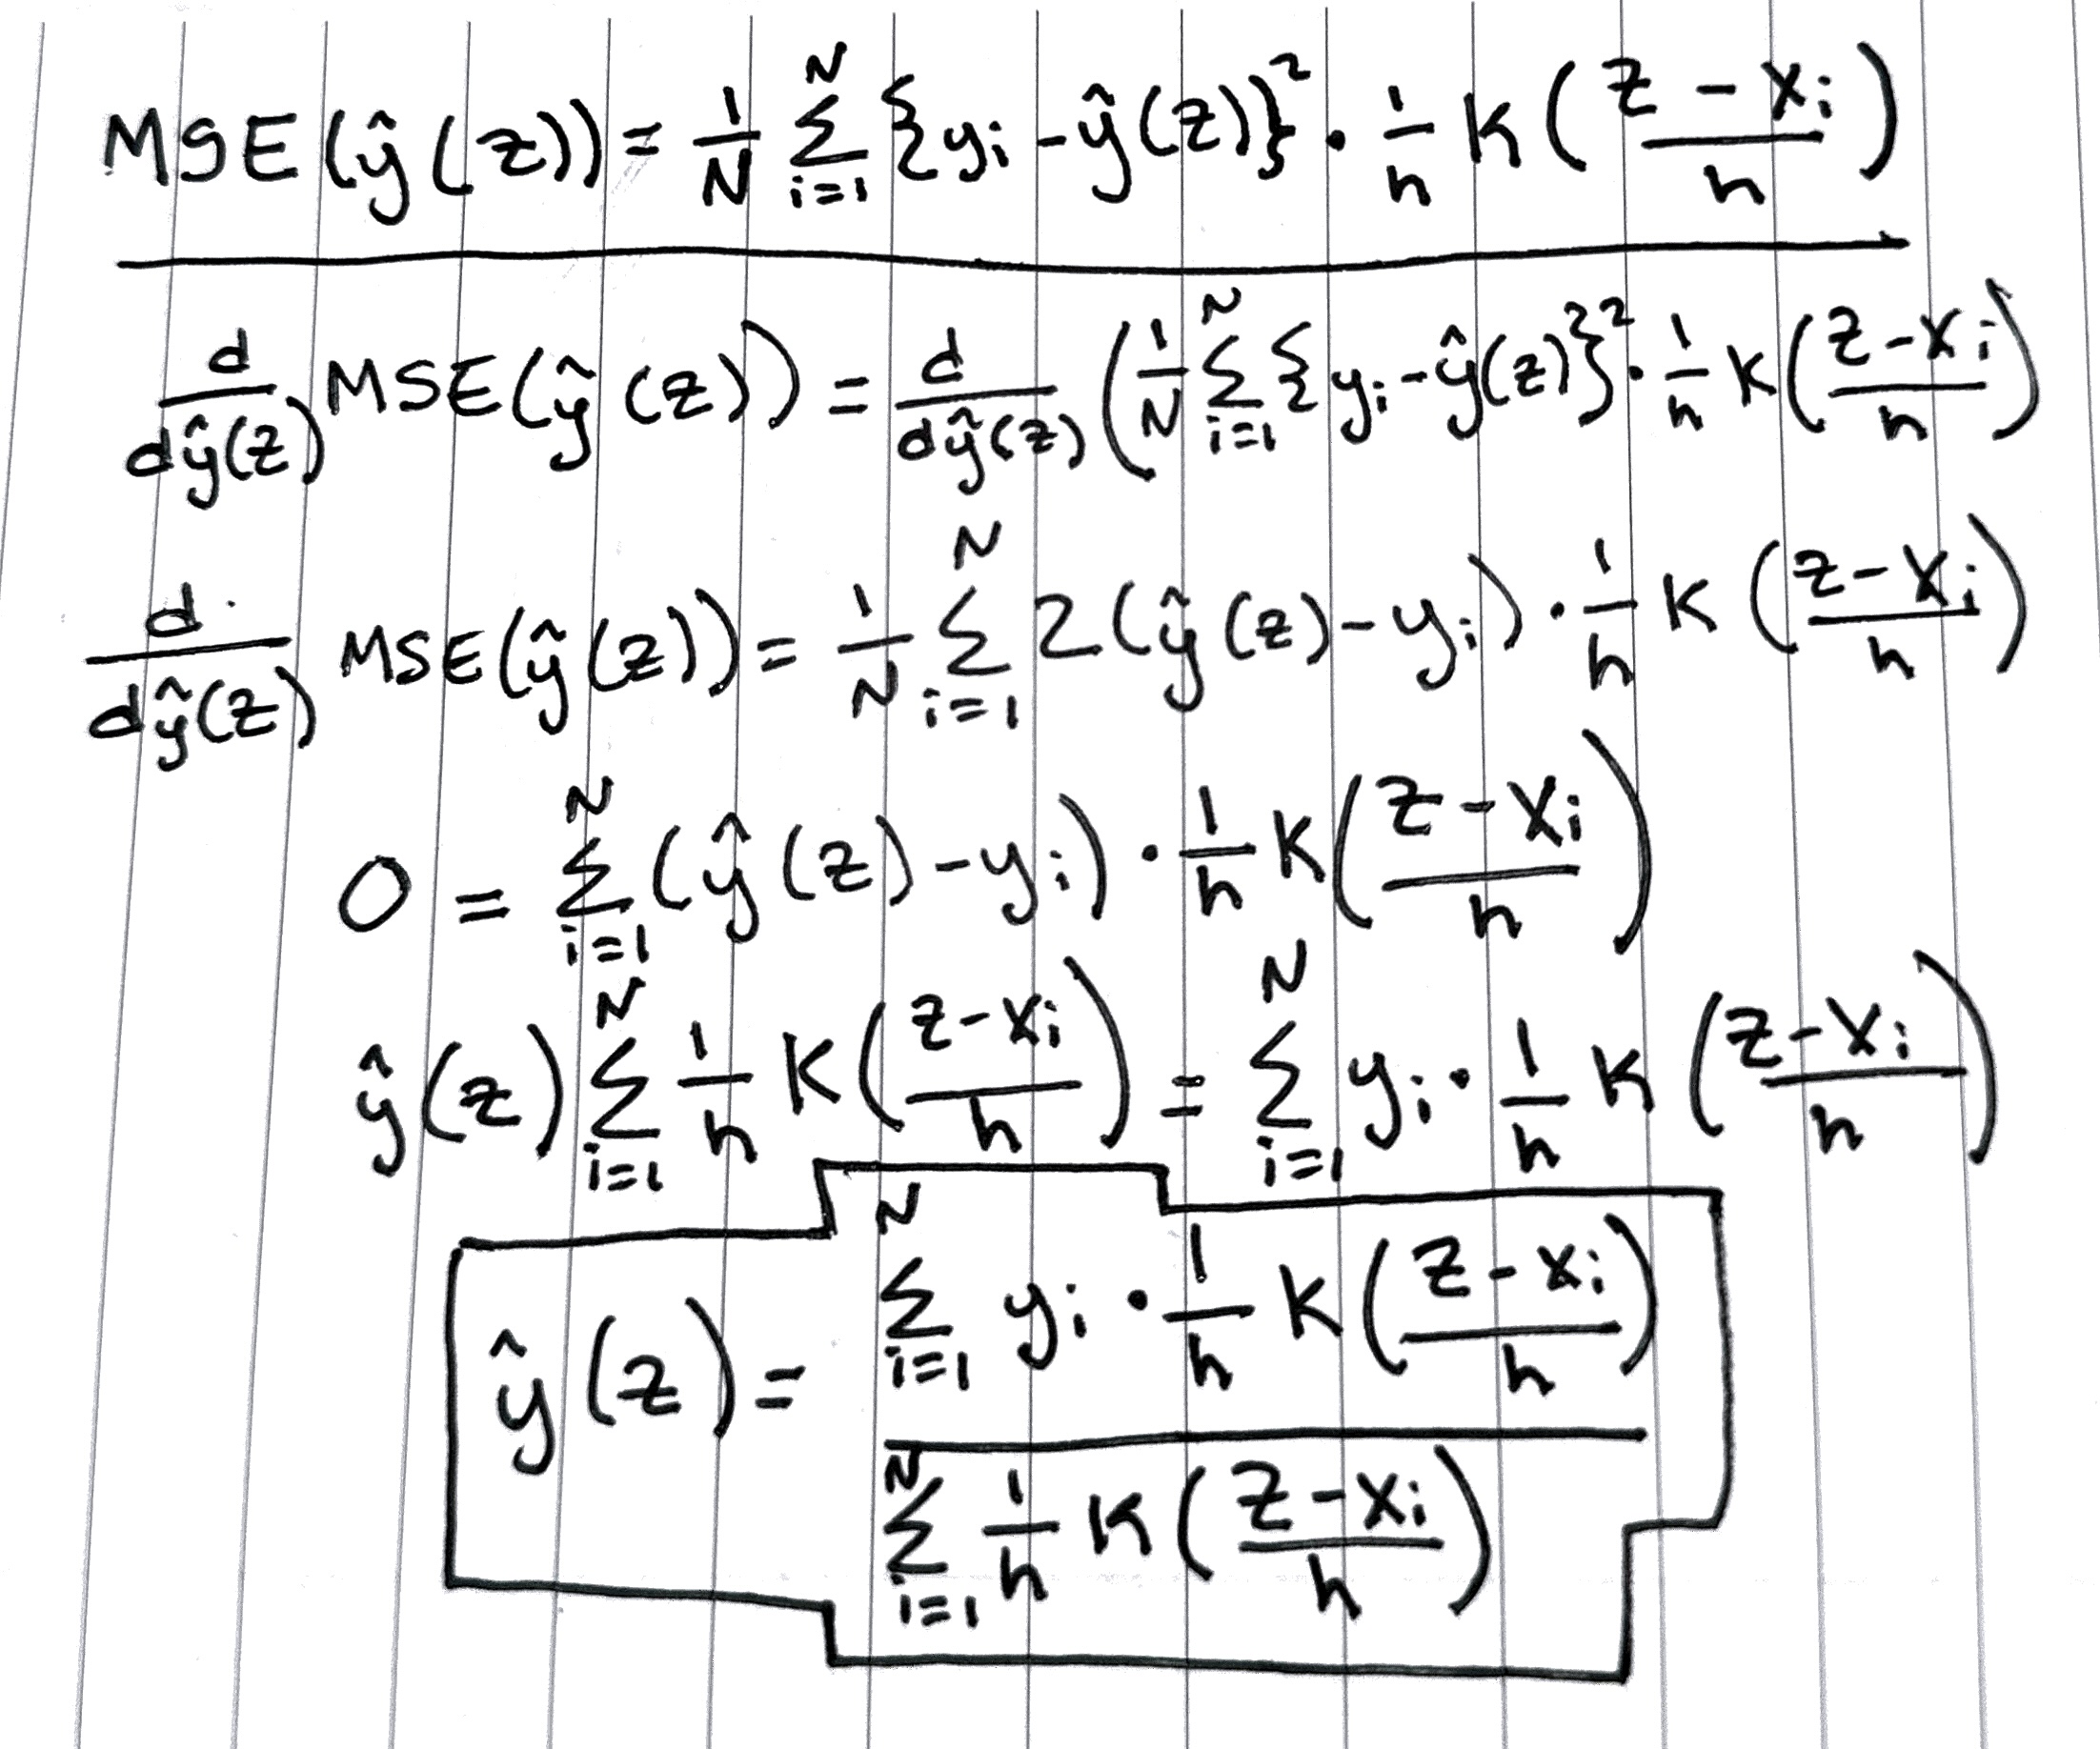 MSE(ŷ(z)) = 1/N Σ_{i=1}^{N} {y_i - ŷ(z)}² · 1/h K((z - x_i)/h)
d/dŷ(z) MSE(ŷ(z)) = d/dŷ(z) (1/N Σ_{i=1}^{N} {y_i - ŷ(z)}² · 1/h K((z - x_i)/h)
d/dŷ(z) MSE(ŷ(z)) = 1/N Σ_{i=1}^{N} 2(ŷ(z) - y_i) · 1/h K((z - x_i)/h)
0 = Σ_{i=1}^{N} (ŷ(z) - y_i) · 1/h K((z - x_i)/h)
ŷ(z) Σ_{i=1}^{N} 1/h K((z - x_i)/h) = Σ_{i=1}^{N} y_i · 1/h K((z - x_i)/h)
ŷ(z) = (Σ_{i=1}^{N} y_i · 1/h K((z - x_i)/h)) / (Σ_{i=1}^{N} 1/h K((z - x_i)/h))